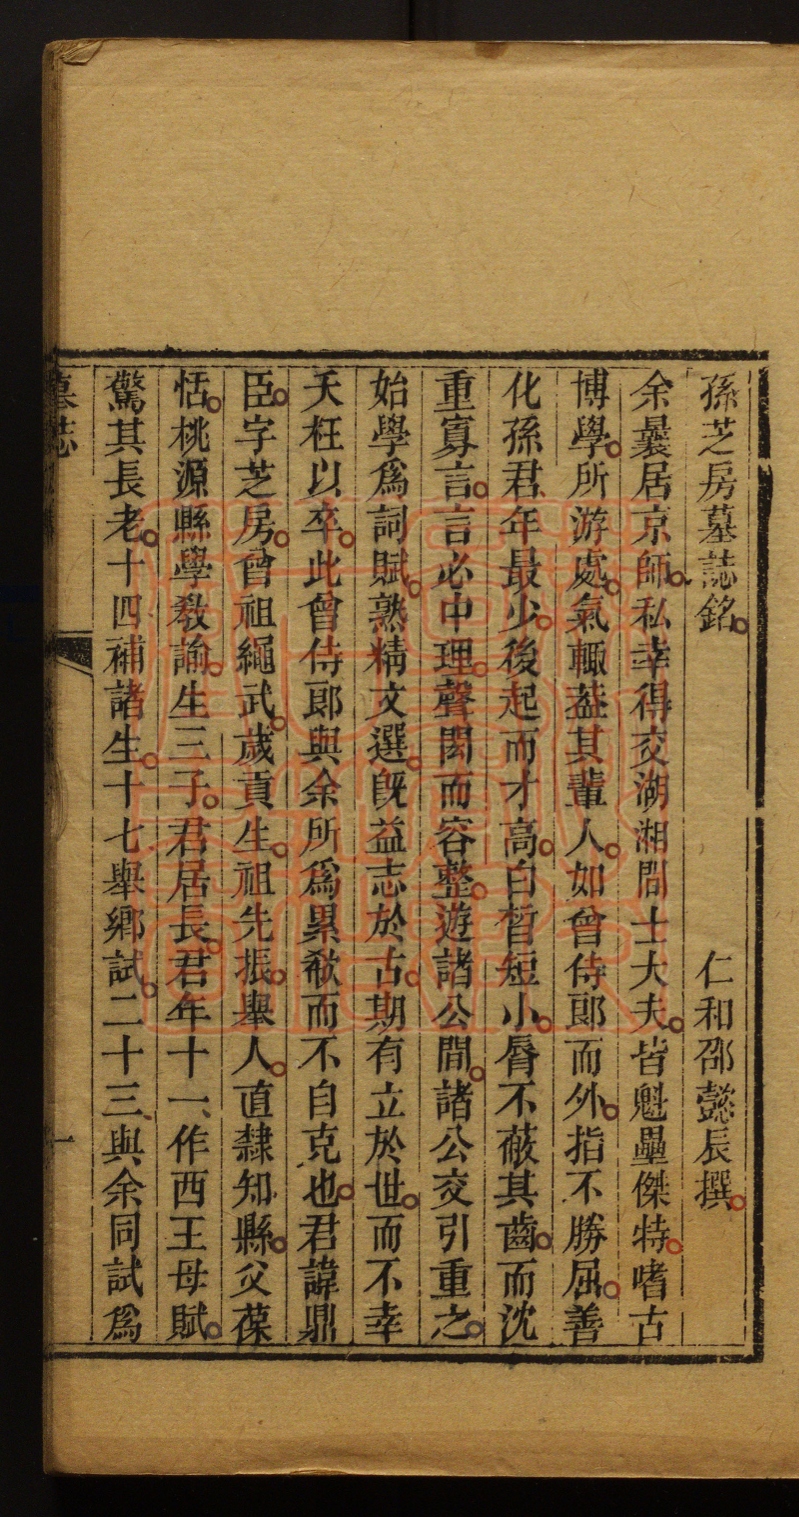 孫芝房墓誌銘
仁和邵懿辰撰
余曩居京師私幸得交湖湘間士大夫皆魁壘傑特嗜古
博學所游處氣輒葢其輩人如曾侍郎而外指不勝屈善
化孫君年最少後起而才高白晳短小脣不蔽其齒而沈
重寡言言必中理聲閎而容整遊諸公間諸公交引重之
始學爲詞賦熟精文選旣益志於古期有立於世而不幸
夭枉以卒此曾侍郎與余所爲累欷而不自克也君諱鼎
臣字芝房曾祖繩武歲貢生祖先振舉人直隸知縣父葆
恬桃源縣學敎諭生三子君居長君年十一作西王母賦
驚其長老十四補諸生十七舉鄉試二十三與余同試爲
墓誌
一